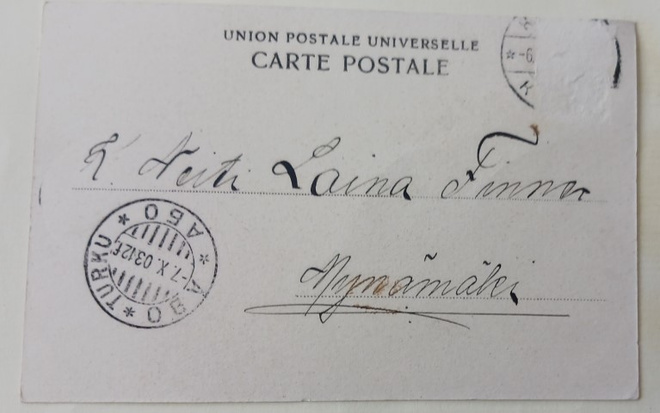 UNION POSTALE UNIVERSELLE
CARTE POSTALE
-6
K. Neiti Laina Finner
Mynämäki
* TURKU * АБО * ÅBO
-7. X. 03 12 E